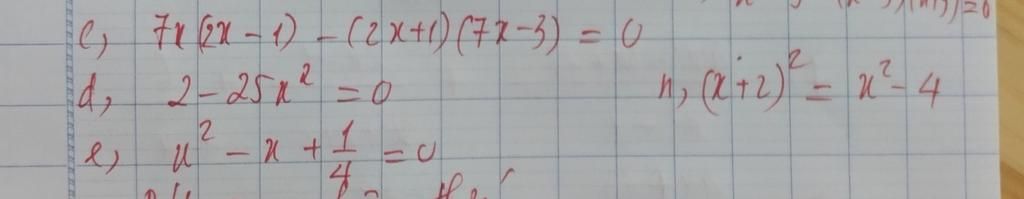 c, 7x(2x-1) - (2x+1)(7x-3) = 0
d, 2 - 25x² = 0
n, (x+2)² = x² - 4
e, x² - x + 1/4 = 0